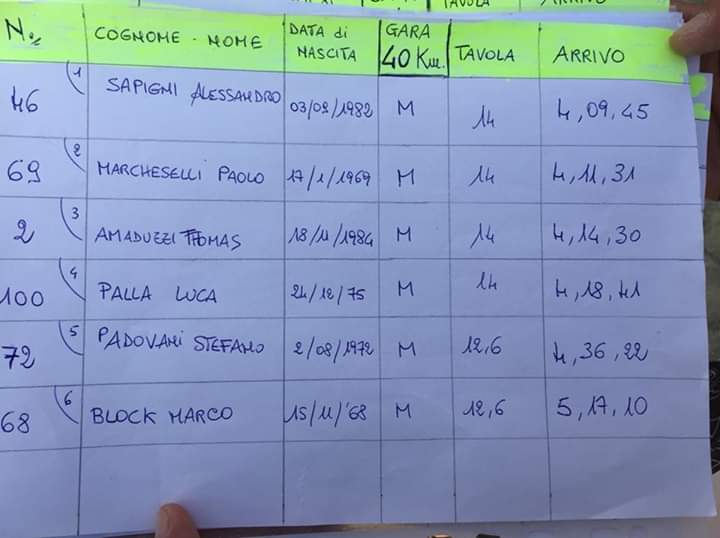 TAVOLA
N.° COGNOME - NOME DATA di NASCITA GARA 40 Km. TAVOLA ARRIVO
46 1 SAPIGNI ALESSANDRO 03/09/1982 M 14 4,09,45
69 2 MARCHESELLI PAOLO 17/1/1969 M 14 4,11,31
2 3 AMADUZZI THOMAS 18/11/1984 M 14 4,14,30
100 4 PALLA LUCA 24/12/75 M 14 4,18,41
72 5 PADOVANI STEFANO 2/08/1972 M 12,6 4,36,22
68 6 BLOCK MARCO 15/11/'68 M 12,6 5,17,10